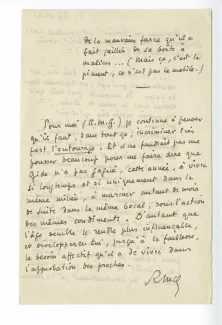 de la mauvaise farce qu'il a
fait jaillir de sa boîte à
malices... (Mais ça, c'est le
piment, ce n'est pas le mobile.)
Pour moi (R.M.G.) je continue à penser
qu'il faut, dans tout ça, incriminer très
fort l'entourage. Et il ne faudrait pas me
pousser beaucoup pour me faire dire que
Gide n'a pas gagné, cette année, à vivre
si longtemps et si uniquement dans le
même milieu, à mariner autant de mois
de suite dans le même bocal, sous l'action
des mêmes condiments. D'autant que
l'âge semble le rendre plus influençable,
et développer en lui, jusqu'à la faiblesse,
le besoin affectif qu'il a de vivre dans
l'approbation des proches.
RMG